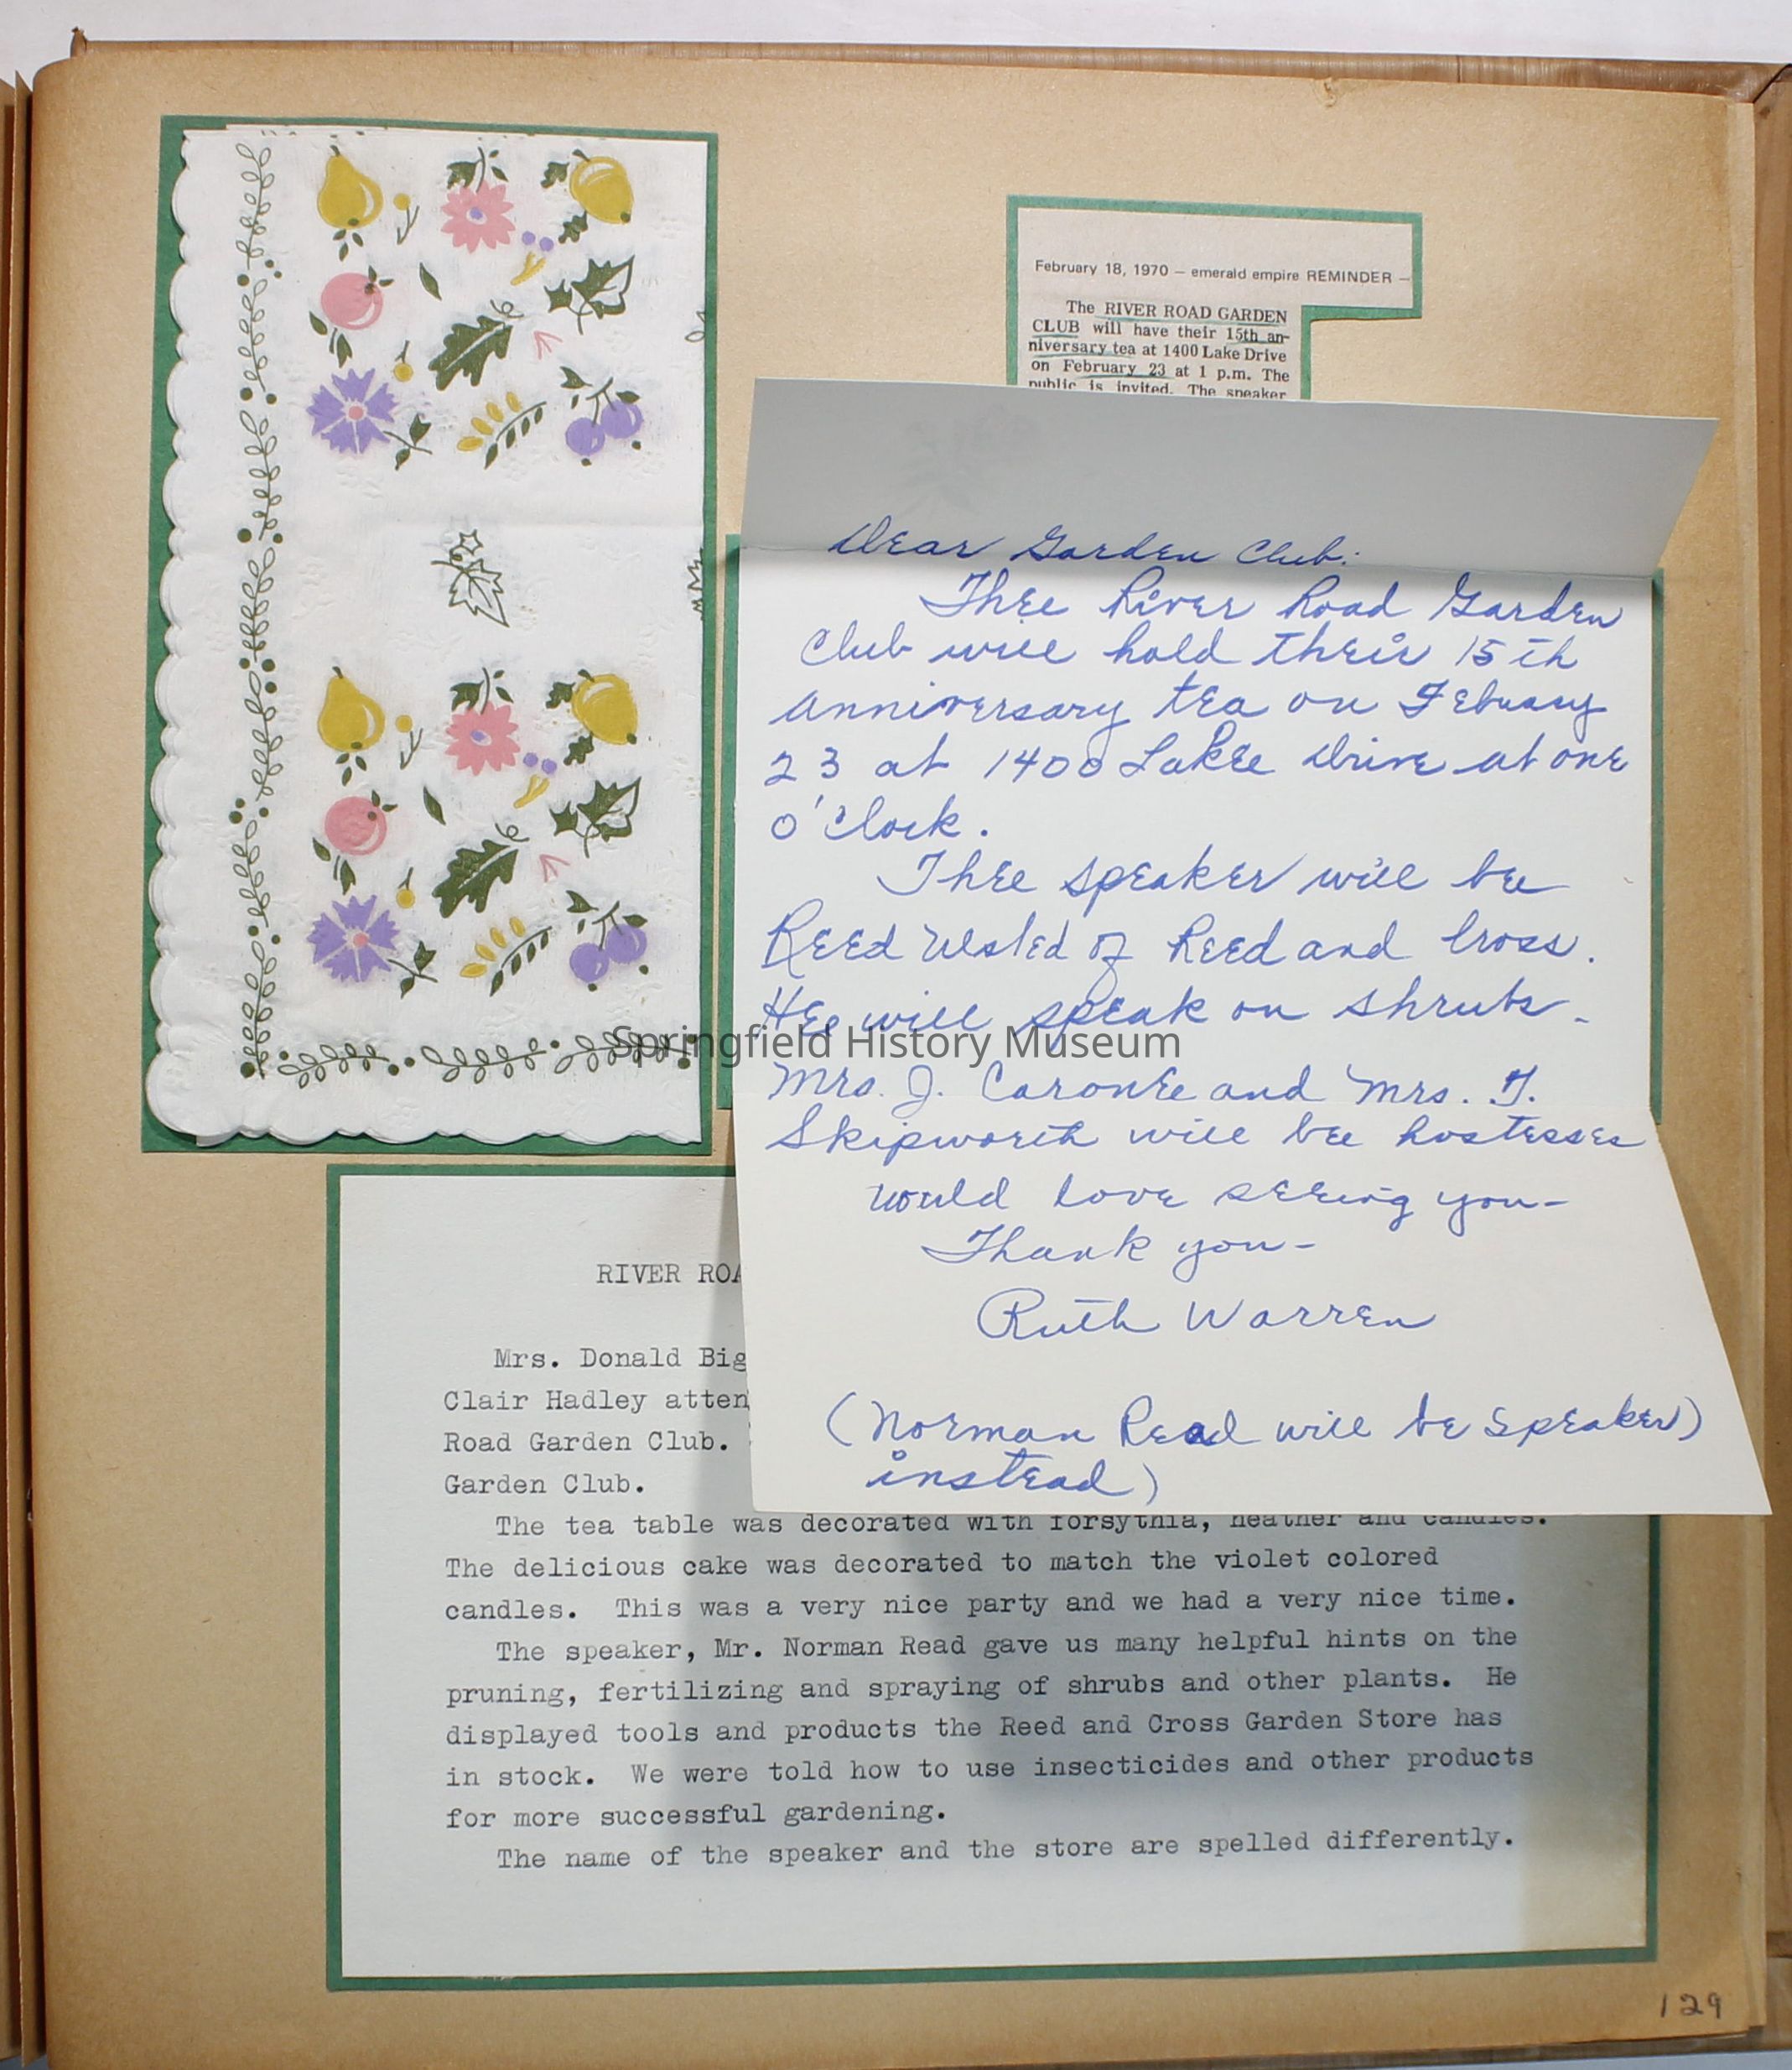 February 18, 1970 — emerald empire REMINDER —
The RIVER ROAD GARDEN
CLUB will have their 15th an-
niversary tea at 1400 Lake Drive
on February 23 at 1 p.m. The
public is invited. The speaker
Dear Garden Club:
Thee River Road Garden
Club will hold their 15th
anniversary tea on Febuary
23 at 1400 Lakee Drive at one
o'clock.
Thee speaker will bee
Reed of Reed and Cross.
Hee will speak on shrubs.
Mrs. J. Caronee and Mrs. T.
Skipworth will bee hostesses
would love seeing you—
Thank you—
Ruth Warren
(Norman Read will be speaker)
instead)
Springfield History Museum
RIVER ROA
Mrs. Donald Big
Clair Hadley atten
Road Garden Club.
Garden Club.
The tea table was decorated with forsythia, heather and candles.
The delicious cake was decorated to match the violet colored
candles. This was a very nice party and we had a very nice time.
The speaker, Mr. Norman Read gave us many helpful hints on the
pruning, fertilizing and spraying of shrubs and other plants. He
displayed tools and products the Reed and Cross Garden Store has
in stock. We were told how to use insecticides and other products
for more successful gardening.
The name of the speaker and the store are spelled differently.
129